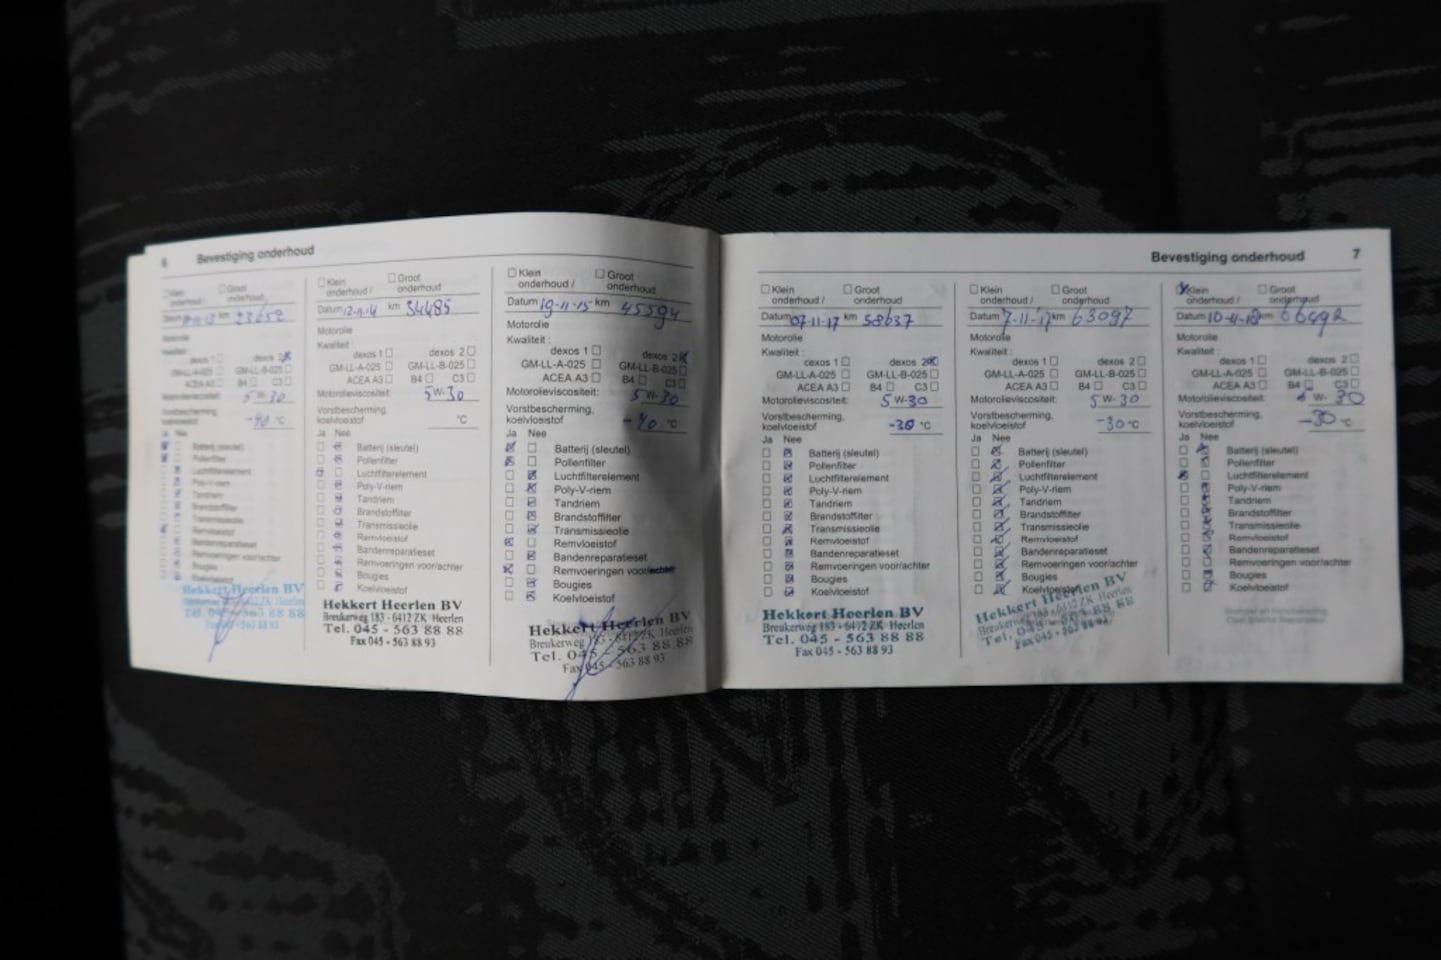 6 Bevestiging onderhoud
Klein onderhoud / Groot onderhoud
Datum km 23652
Motorolie
Kwaliteit :
dexos 1 dexos 2
GM-LL-A-025 GM-LL-B-025
ACEA A3 B4 C3
Motorolieviscositeit: 5 W- 30
Vorstbescherming, koelvloeistof -40 °C
Ja Nee
Batterij (sleutel)
Pollenfilter
Luchtfilterelement
Poly-V-riem
Tandriem
Brandstoffilter
Transmissieolie
Remvloeistof
Bandenreparatieset
Remvoeringen voor/achter
Bougies
Koelvloeistof
Hekkert Heerlen BV
Klein onderhoud / Groot onderhoud
Datum km 34485
Motorolie
Kwaliteit :
dexos 1 dexos 2
GM-LL-A-025 GM-LL-B-025
ACEA A3 B4 C3
Motorolieviscositeit: 5 W- 30
Vorstbescherming, koelvloeistof °C
Ja Nee
Batterij (sleutel)
Pollenfilter
Luchtfilterelement
Poly-V-riem
Tandriem
Brandstoffilter
Transmissieolie
Remvloeistof
Bandenreparatieset
Remvoeringen voor/achter
Bougies
Koelvloeistof
Hekkert Heerlen BV
Breukerweg 183 - 6412 ZK Heerlen
Tel. 045 - 563 88 88
Fax 045 - 563 88 93
Klein onderhoud / Groot onderhoud
Datum 19-11-15 km 45594
Motorolie
Kwaliteit :
dexos 1 dexos 2
GM-LL-A-025 GM-LL-B-025
ACEA A3 B4 C3
Motorolieviscositeit: 5 W- 30
Vorstbescherming, koelvloeistof -40 °C
Ja Nee
Batterij (sleutel)
Pollenfilter
Luchtfilterelement
Poly-V-riem
Tandriem
Brandstoffilter
Transmissieolie
Remvloeistof
Bandenreparatieset
Remvoeringen voor/achter
Bougies
Koelvloeistof
Hekkert Heerlen BV
Breukerweg 183 - 6412 ZK Heerlen
Tel. 045 - 563 88 88
Fax 045 - 563 88 93
Bevestiging onderhoud 7
Klein onderhoud / Groot onderhoud
Datum 07-11-17 km 58637
Motorolie
Kwaliteit :
dexos 1 dexos 2
GM-LL-A-025 GM-LL-B-025
ACEA A3 B4 C3
Motorolieviscositeit: 5 W- 30
Vorstbescherming, koelvloeistof -30 °C
Ja Nee
Batterij (sleutel)
Pollenfilter
Luchtfilterelement
Poly-V-riem
Tandriem
Brandstoffilter
Transmissieolie
Remvloeistof
Bandenreparatieset
Remvoeringen voor/achter
Bougies
Koelvloeistof
Hekkert Heerlen BV
Breukerweg 183 - 6412 ZK Heerlen
Tel. 045 - 563 88 88
Fax 045 - 563 88 93
Klein onderhoud / Groot onderhoud
Datum 7-11-17 km 63097
Motorolie
Kwaliteit :
dexos 1 dexos 2
GM-LL-A-025 GM-LL-B-025
ACEA A3 B4 C3
Motorolieviscositeit: 5 W- 30
Vorstbescherming, koelvloeistof -30 °C
Ja Nee
Batterij (sleutel)
Pollenfilter
Luchtfilterelement
Poly-V-riem
Tandriem
Brandstoffilter
Transmissieolie
Remvloeistof
Bandenreparatieset
Remvoeringen voor/achter
Bougies
Koelvloeistof
Hekkert Heerlen BV
Breukerweg 183 - 6412 ZK Heerlen
Tel. 045 - 563 88 88
Fax 045 - 563 88 93
Klein onderhoud / Groot onderhoud
Datum km 66492
Motorolie
Kwaliteit :
dexos 1 dexos 2
GM-LL-A-025 GM-LL-B-025
ACEA A3 B4 C3
Motorolieviscositeit: W- 30
Vorstbescherming, koelvloeistof -30 °C
Ja Nee
Batterij (sleutel)
Pollenfilter
Luchtfilterelement
Poly-V-riem
Tandriem
Brandstoffilter
Transmissieolie
Remvloeistof
Bandenreparatieset
Remvoeringen voor/achter
Bougies
Koelvloeistof